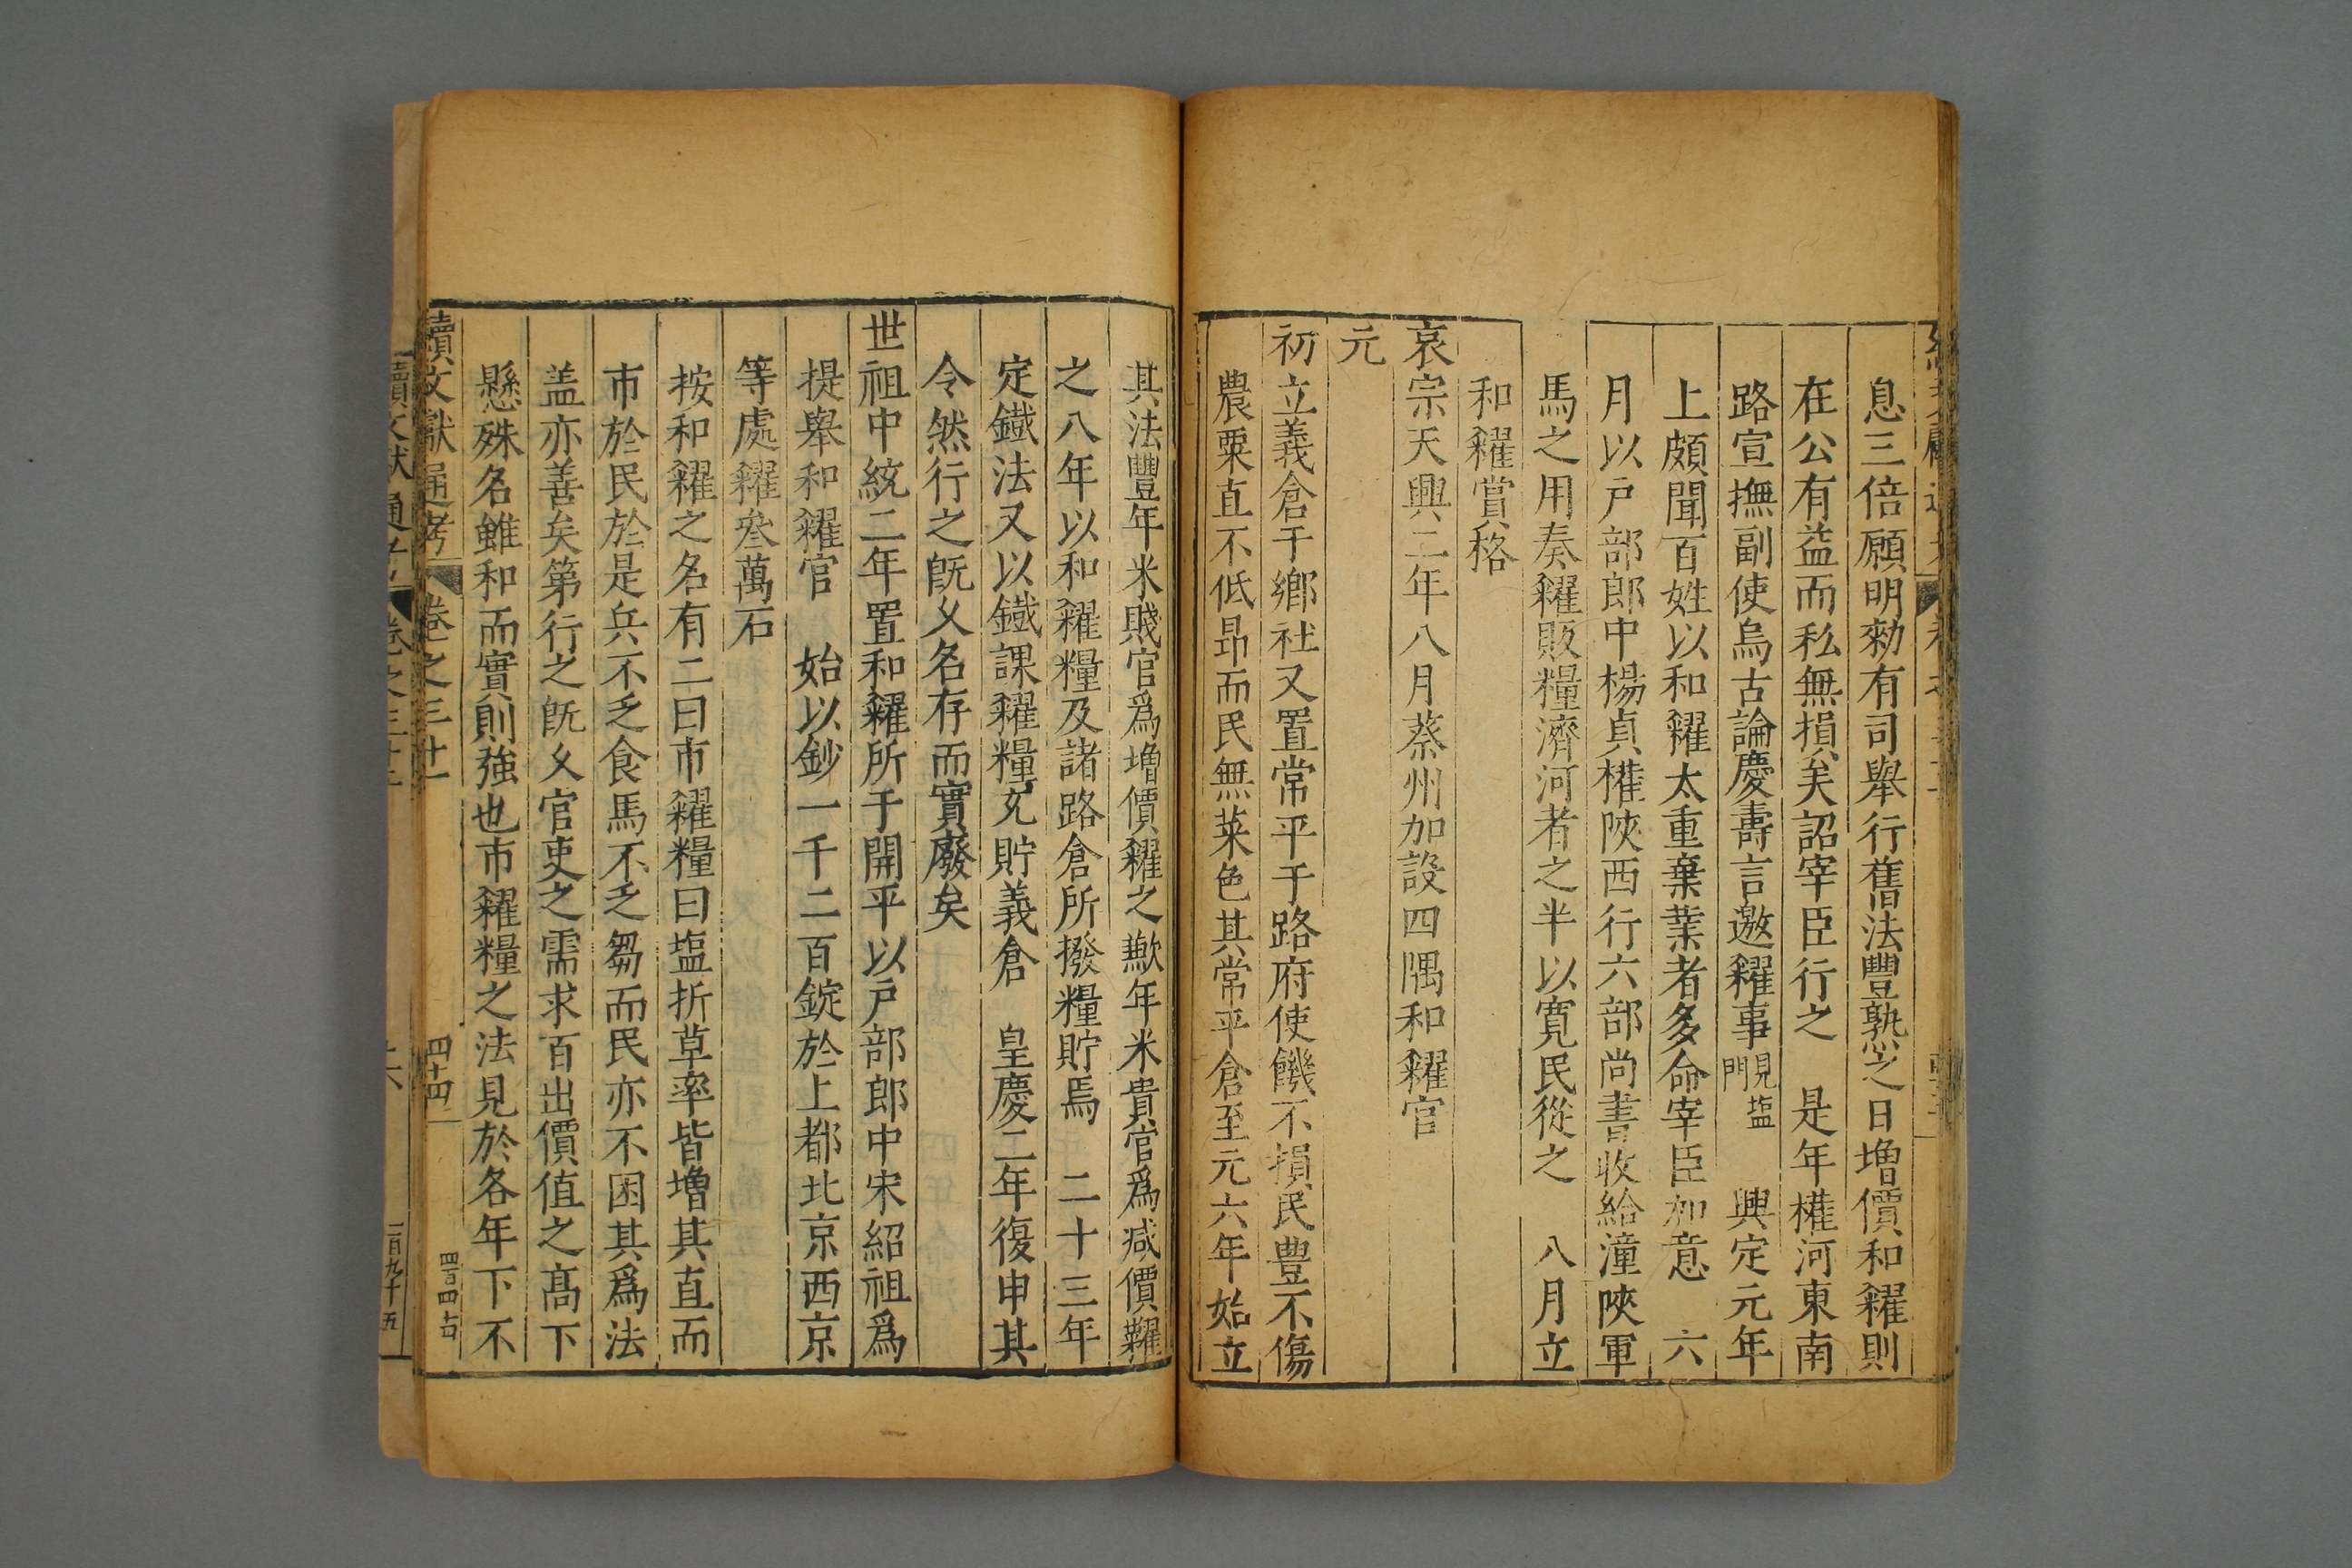 息三倍願明勑有司舉行舊法豐熟之日增價和糴則
在公有益而私無損矣詔宰臣行之　是年權河東南
路宣撫副使烏古論慶壽言邀糴事見塩門　興定元年
上頗聞百姓以和糴太重棄業者多命宰臣加意　六
月以戶部郎中楊貞權陝西行六部尚書收給潼陝軍
馬之用奏糴販糧濟河者之半以寬民從之　八月立
和糴賞格
哀宗天興二年八月蔡州加設四隅和糴官
元
初立義倉于鄉社又置常平于路府使饑不損民豊不傷
農粟直不低昻而民無菜色其常平倉至元六年始立
其法豐年米賤官爲增價糴之歉年米貴官爲减價糶
之八年以和糴糧及諸路倉所撥糧貯焉　二十三年
定鐵法又以鐵課糴糧充貯義倉　皇慶二年復申其
令然行之旣乂名存而實廢矣
世祖中統二年置和糴所于開平以戶部郎中宋紹祖爲
提舉和糴官　始以鈔一千二百錠於上都北京西京
等處糴叄萬石
按和糴之名有二曰市糴糧曰塩折草率皆增其直而
市於民於是兵不乏食馬不乏芻而民亦不困其爲法
盖亦善矣第行之旣乂官吏之需求百出價值之髙下
懸殊名雖和而實則强也市糴糧之法見於各年下不
續文獻通考　卷之三十一　四十四